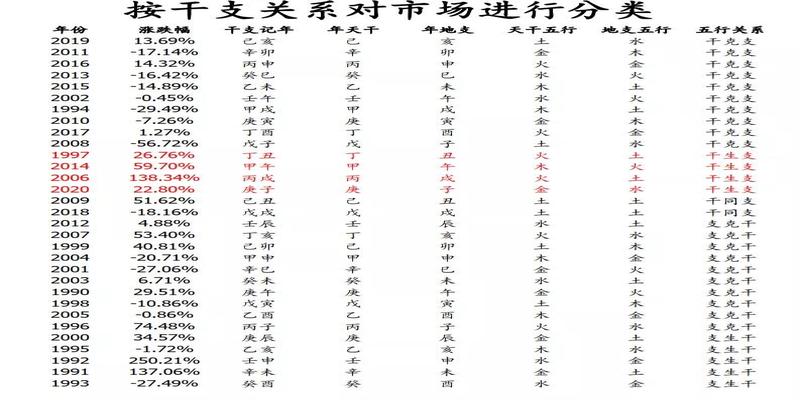 按干支关系对市场进行分类
年份 涨跌幅 干支记年 年天干 年地支 天干五行 地支五行 五行关系
2019 13.69% 己亥 己 亥 土 水 干克支
2011 -17.14% 辛卯 辛 卯 金 木 干克支
2016 14.32% 丙申 丙 申 火 金 干克支
2013 -16.42% 癸巳 癸 巳 水 火 干克支
2015 -14.89% 乙未 乙 未 木 土 干克支
2002 -0.45% 壬午 壬 午 水 火 干克支
1994 -29.49% 甲戌 甲 戌 木 土 干克支
2010 -7.26% 庚寅 庚 寅 金 木 干克支
2017 1.27% 丁酉 丁 酉 火 金 干克支
2008 -56.72% 戊子 戊 子 土 水 干克支
1997 26.76% 丁丑 丁 丑 火 土 干生支
2014 59.70% 甲午 甲 午 木 火 干生支
2006 138.34% 丙戌 丙 戌 火 土 干生支
2020 22.80% 庚子 庚 子 金 水 干生支
2009 51.62% 己丑 己 丑 土 土 干同支
2018 -18.16% 戊戌 戊 戌 土 土 干同支
2012 4.88% 壬辰 壬 辰 水 土 支克干
2007 53.40% 丁亥 丁 亥 火 水 支克干
1999 40.81% 己卯 己 卯 土 木 支克干
2004 -20.71% 甲申 甲 申 木 金 支克干
2001 -27.06% 辛巳 辛 巳 金 火 支克干
2003 6.71% 癸未 癸 未 水 土 支克干
1990 29.51% 庚午 庚 午 金 火 支克干
1998 -10.86% 戊寅 戊 寅 土 木 支克干
2005 -0.86% 乙酉 乙 酉 木 金 支克干
1996 74.48% 丙子 丙 子 火 水 支克干
2000 34.57% 庚辰 庚 辰 金 土 支生干
1995 -1.72% 乙亥 乙 亥 木 水 支生干
1992 250.21% 壬申 壬 申 水 金 支生干
1991 137.06% 辛未 辛 未 金 土 支生干
1993 -27.49% 癸酉 癸 酉 水 金 支生干